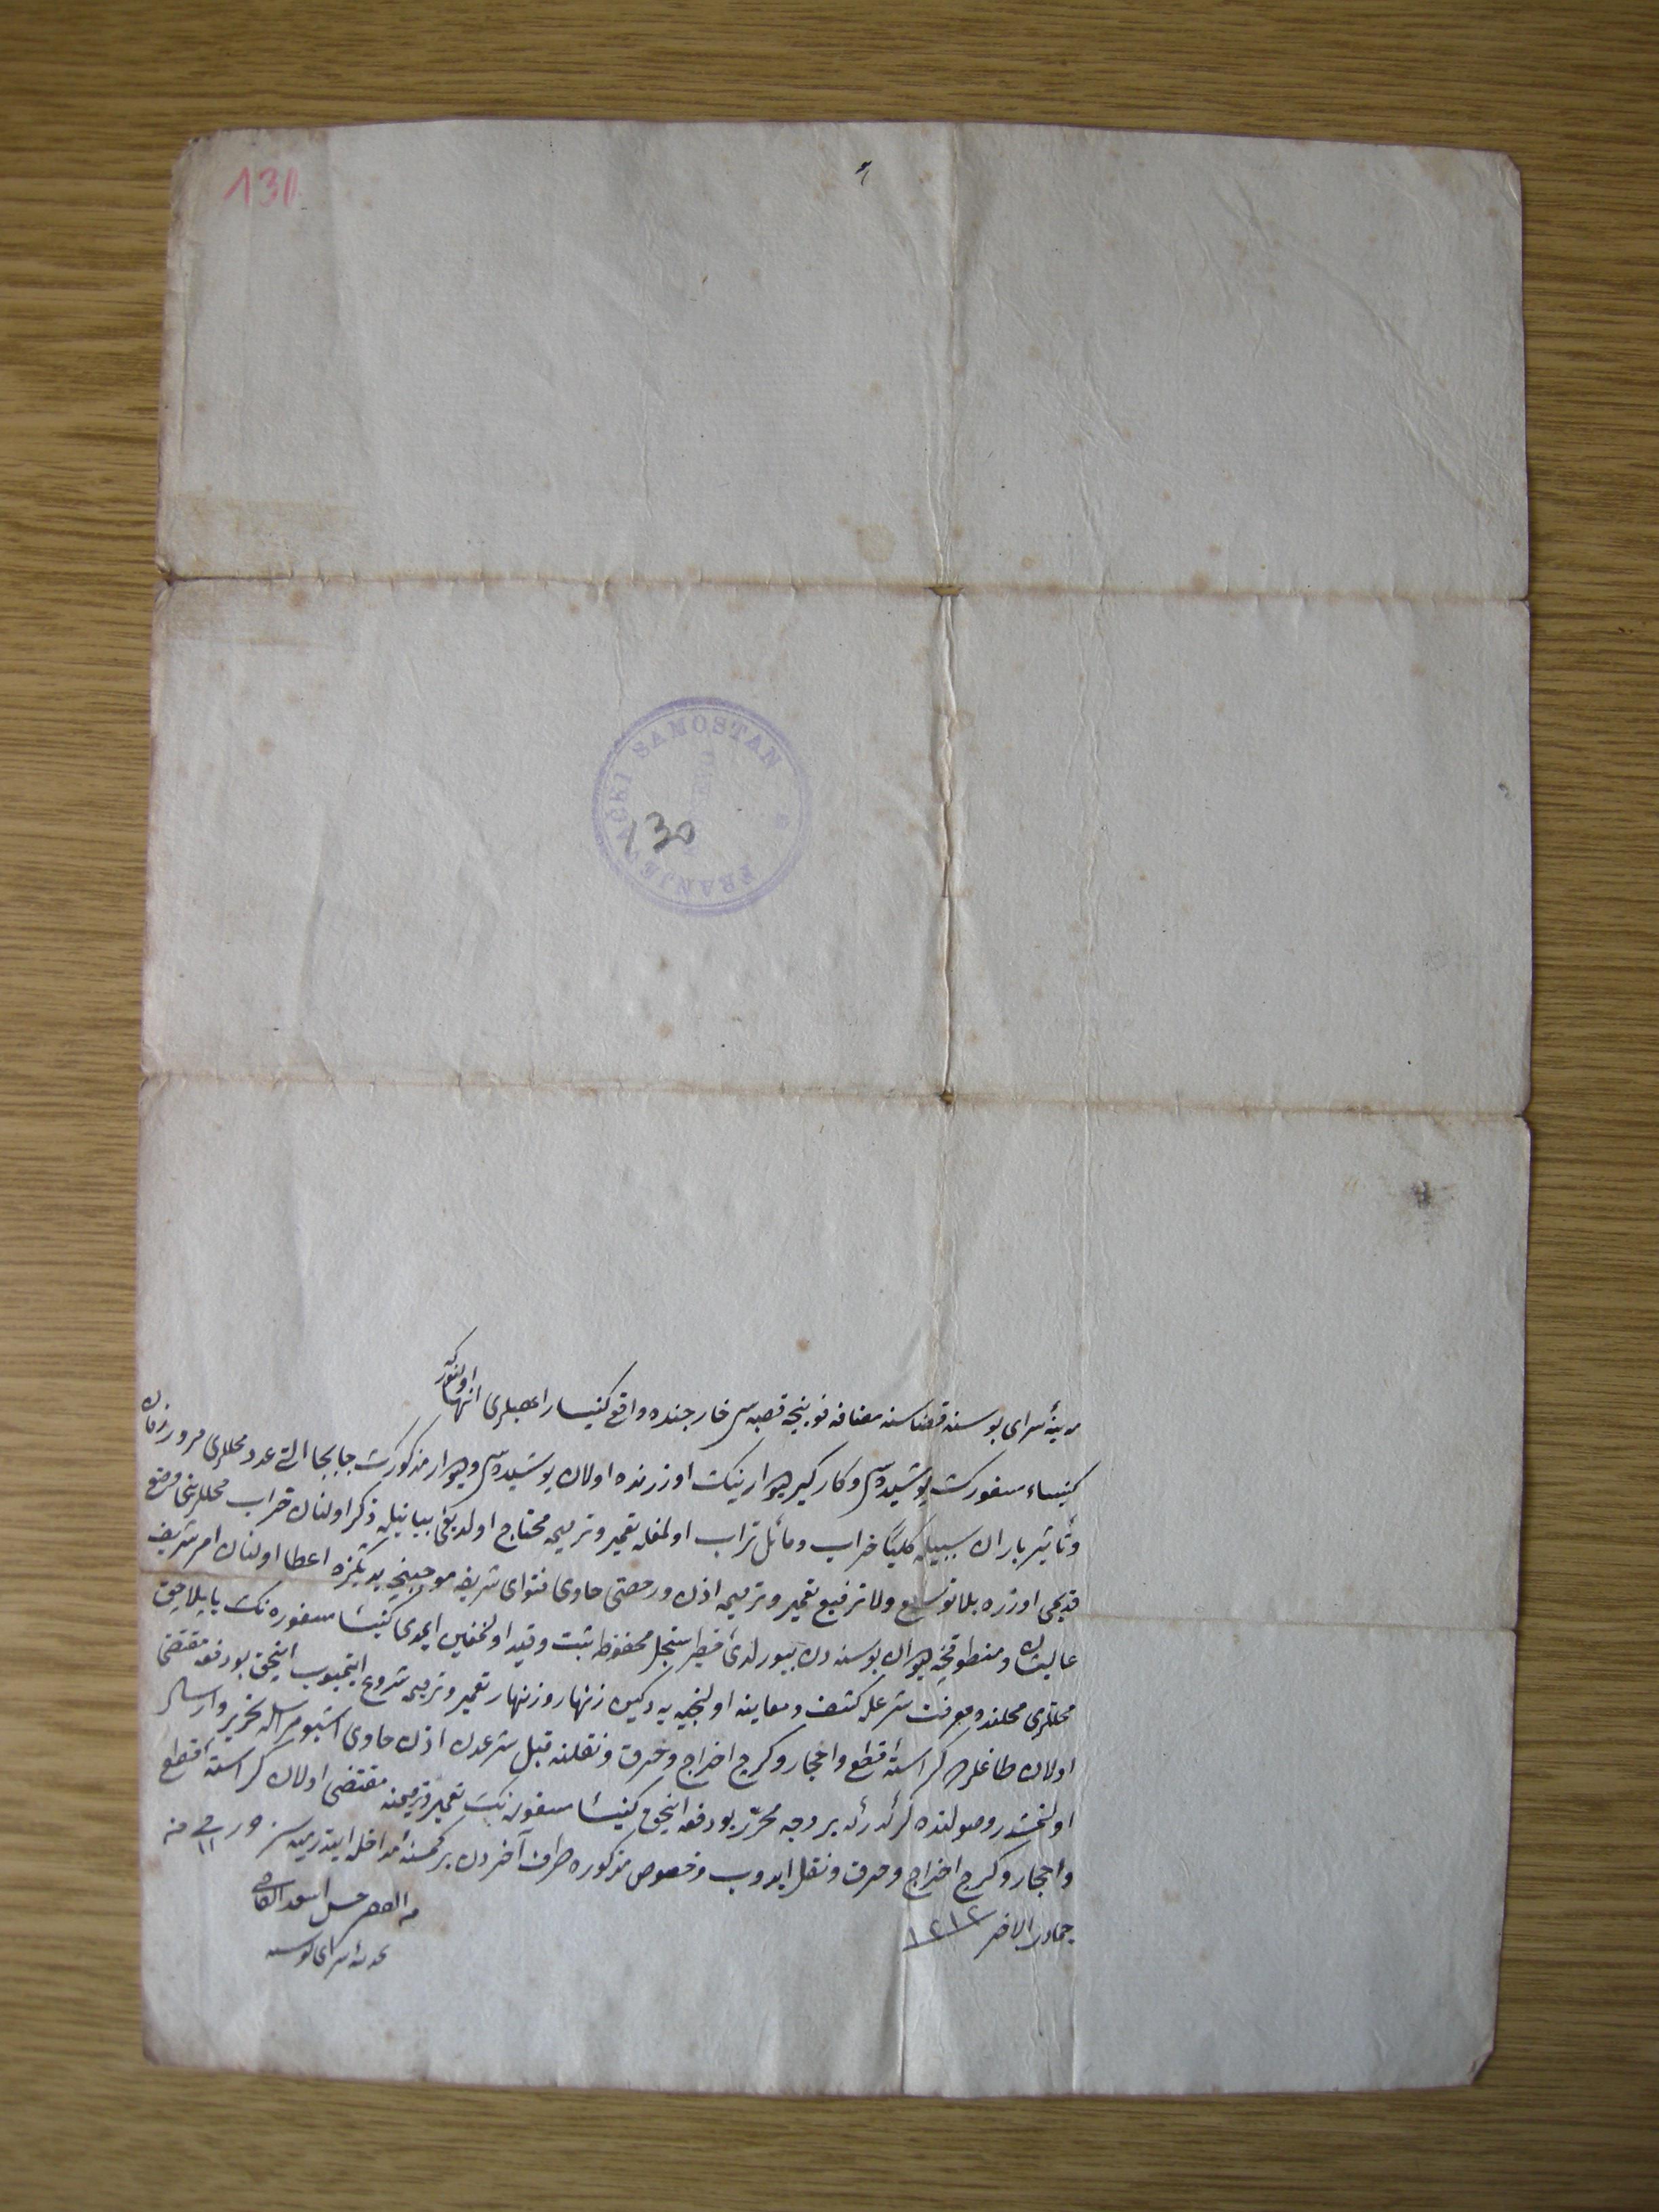 130
130
FRANJEVAČKI SAMOSTAN
مدینهٔ سرای بوسنه قضاسنه مضافه فوینیچه قصبه‌سی خارجنده واقع کنیسا راهبلری انها اولنور که
کنیساء مسفورک پوشیده‌سی وکارکیر دیوارینک اوزرنده اولان پوشیده‌سی ودیوار مذکورک جابجا التی عدد محللری مرور زمان
وتأثیر باران سببیله کلیاً خراب ومائل تراب اولمغله تعمیر وترمیمه محتاج اولدیغی بیانیله ذکر اولنان خراب محللرینی وضع
قدیمی اوزره بلا توسیع ولا ترفیع تعمیر وترمیمه اذن ورخصتی حاوی فتوای شریفه موجبنجه یدیکزه اعطا اولنان امر شریف
عالیشان ومنطوقنجه دیوان بوسنه‌دن بیورلدی قید سجل محفوظ ثبت وقید اولنمغین ایمدی کنیسا مسفوره‌نک
محللری محلنده معرفت شرعله کشف ومعاینه اولنجیه‌یه دکین زنهار وزنهار تعمیر وترمیمه شروع ایتمیوب انجق بو دفعه مقتضی
اولان طاغلردن کراسته قطع واحجار وکرج اخراج وحرق ونقلنه قبل شرعدن اذن حاوی اشبو مراسله تحریر وارسال
اولنمشدر وصولنده کرکدر که بر وجه محرر بو دفعه انجق کنیسا مسفوره‌نک تعمیر وترمیمنه مقتضی اولان کراسته قطع
واحجار وکرج اخراج وحرق ونقل ایدوب وخصوص مذکوره طرف آخردن بر کمسنه مداخله ایتدرمیه‌سز حرر فی ١١ من
جمادی الاخر ١٢١٢
من الفقیر حسن اسعد القاضی
بمدینهٔ سرای بوسنه